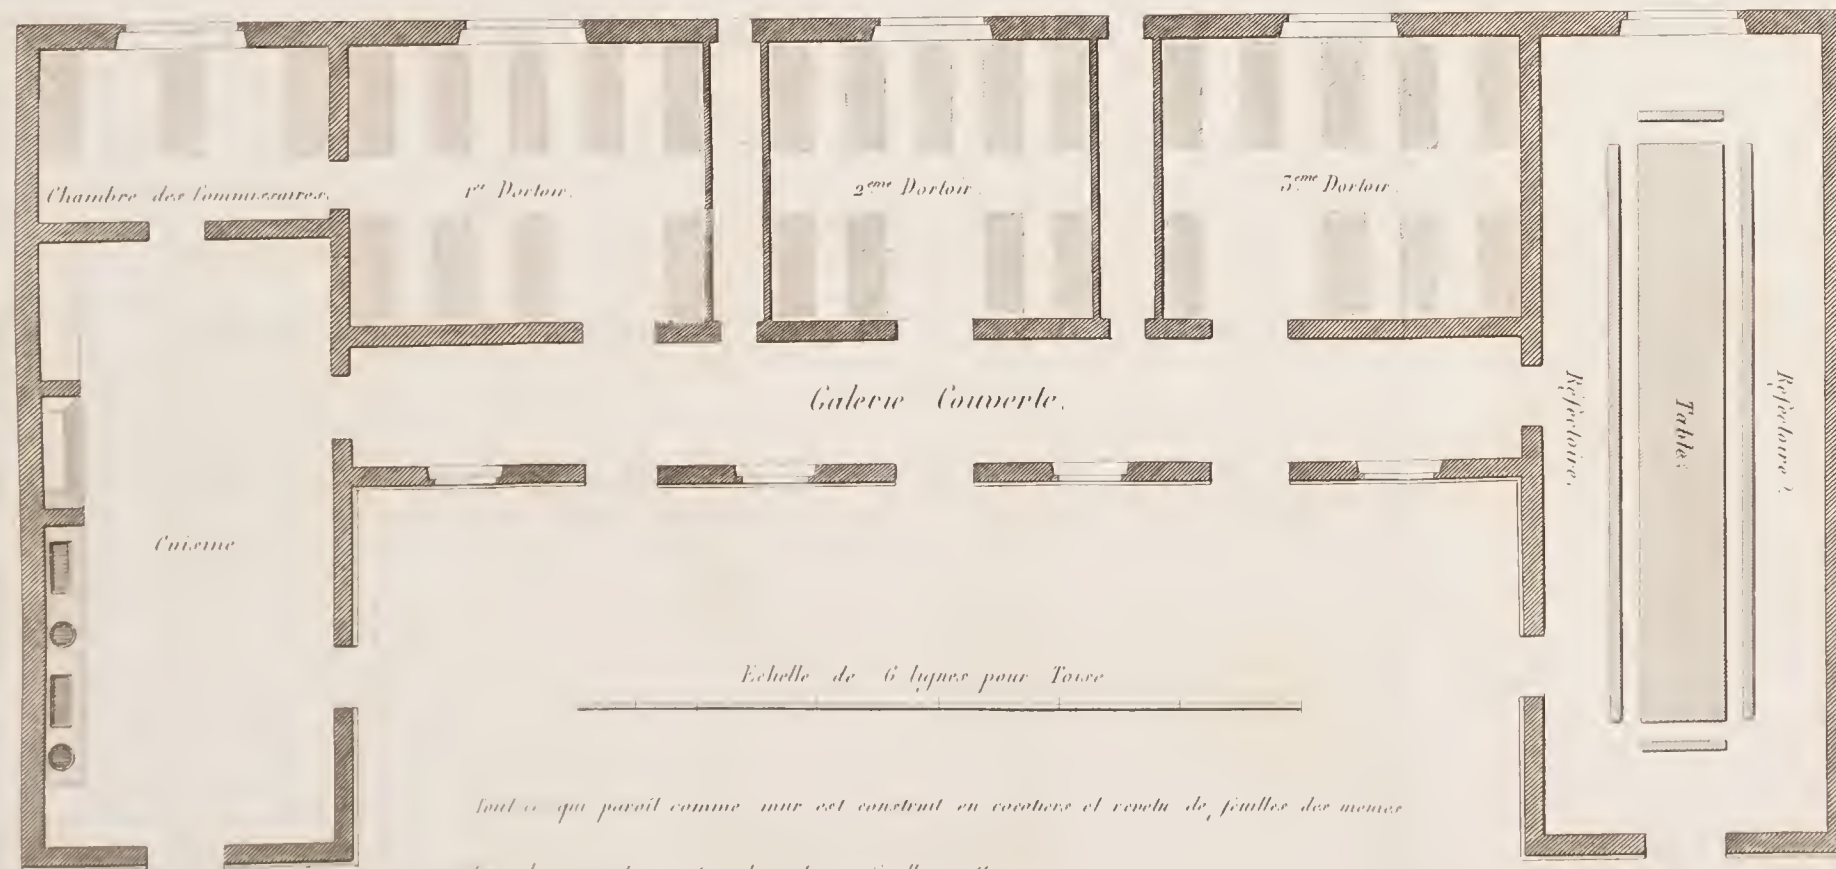 Chambre des Commissaires.
1er Dortoir.
2eme Dortoir.
3eme Dortoir.
Galerie Couverte.
Réfectoire.
Table.
Réfectoire.
Cuisine
Echelle de 6 lignes pour Toise
Tout ce qui paroît comme mur est construit en cocotiers et revetu de feuilles des memes